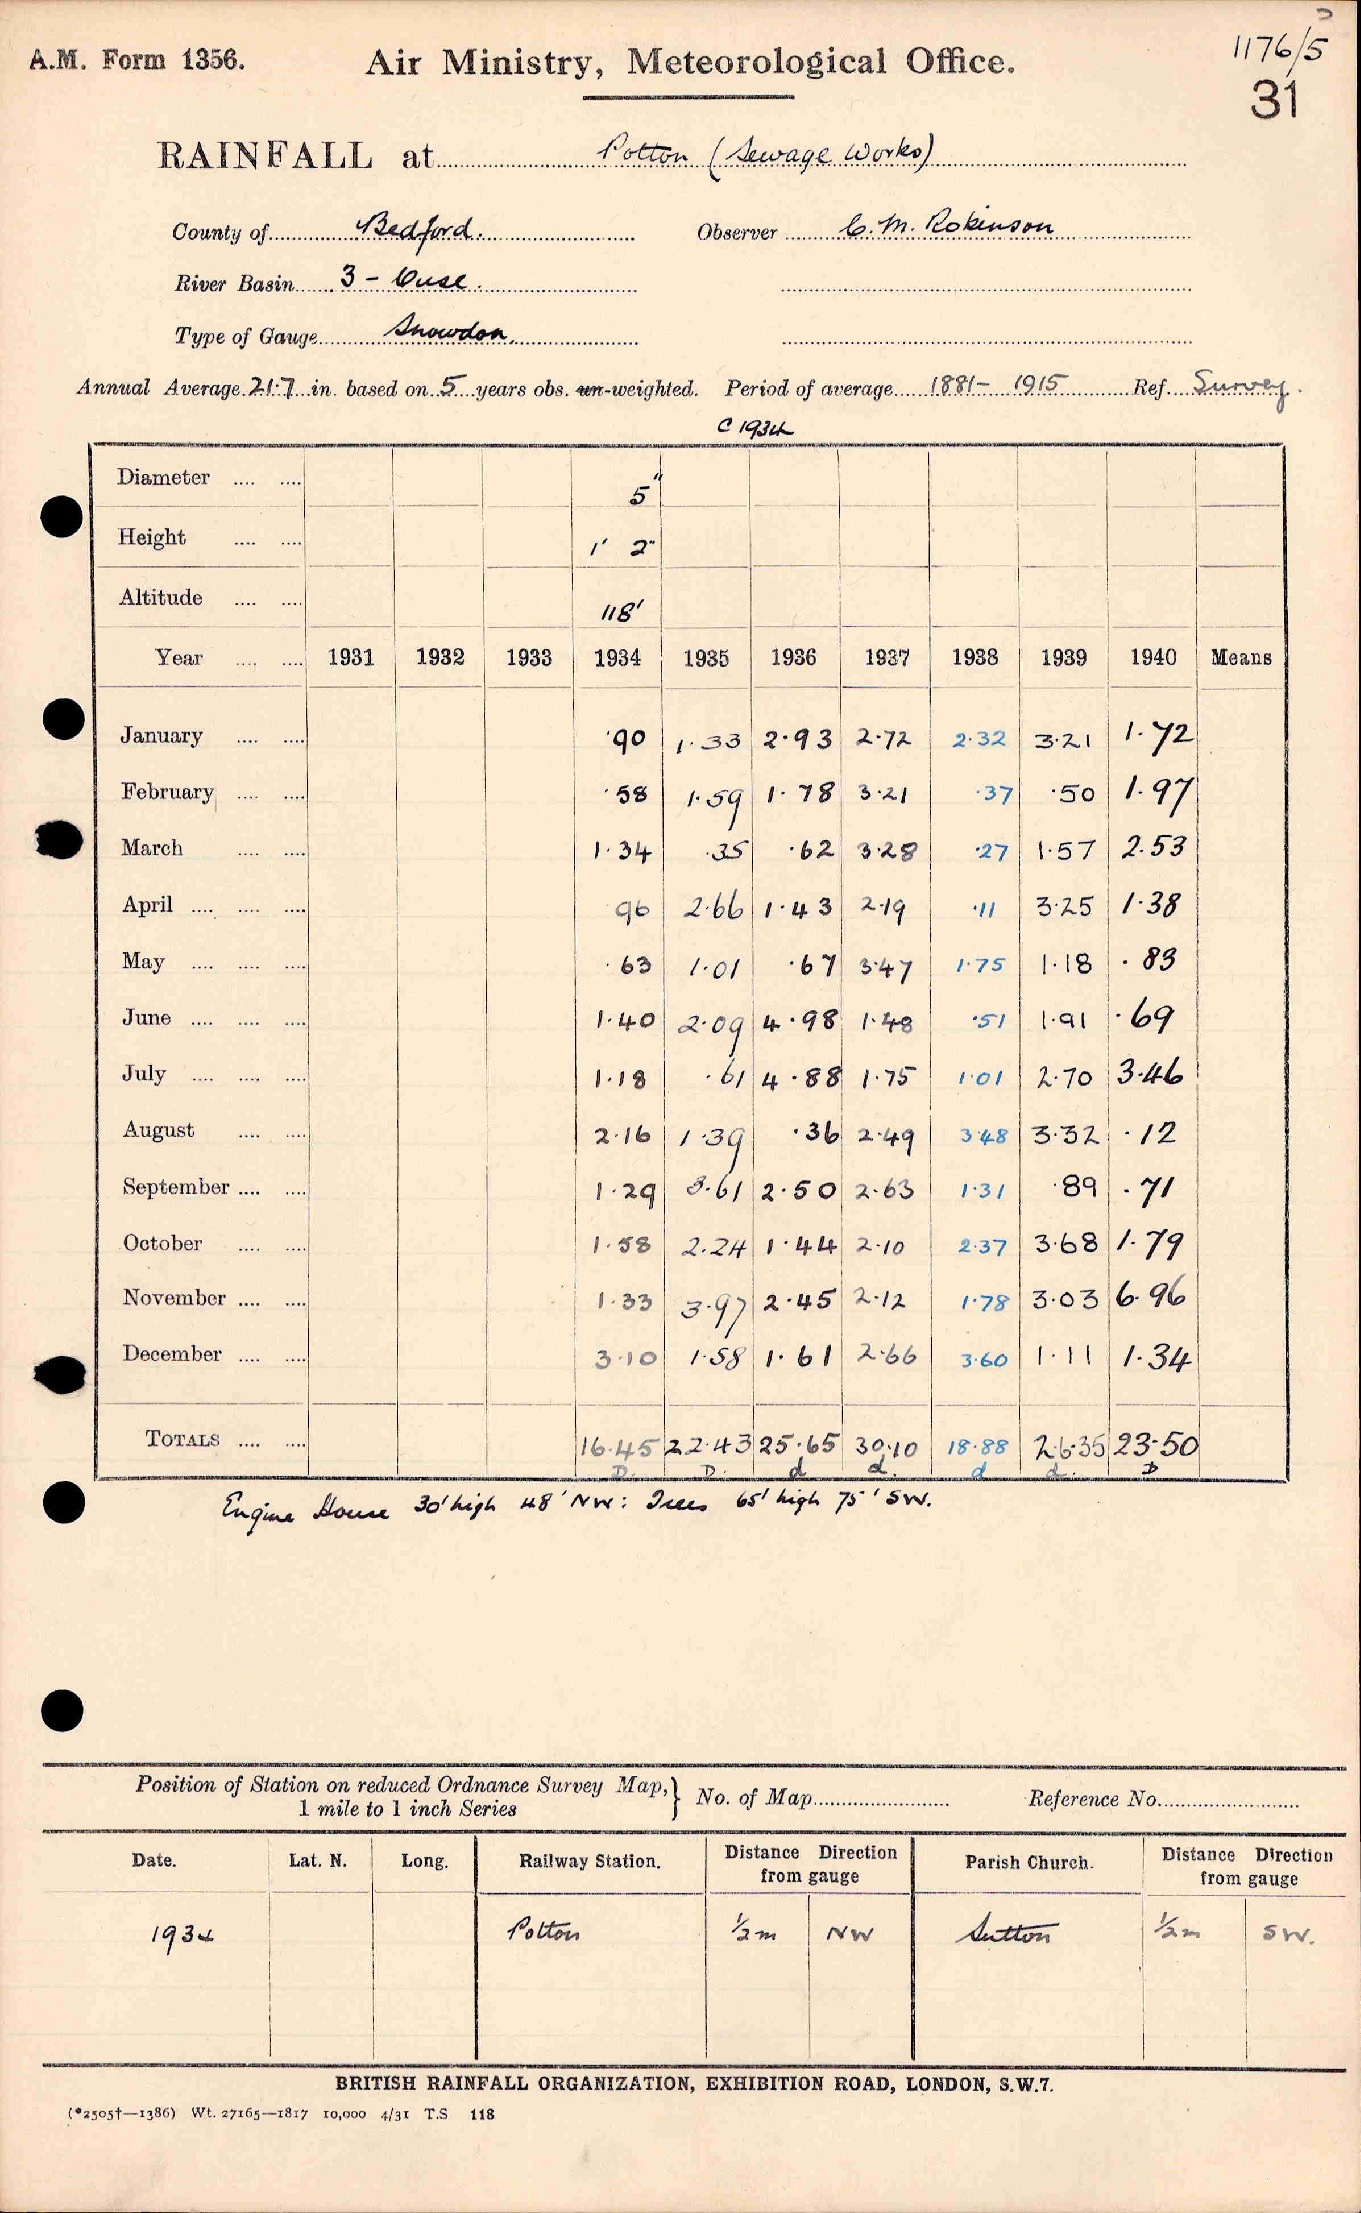 1176/5
A.M. Form 1356. Air Ministry, Meteorological Office.
31
RAINFALL at Potton (Sewage Works)
County of Bedford. Observer C. M. Robinson
River Basin 3 - Ouse.
Type of Gauge Snowdon.
Annual Average 21.7 in. based on 5 years obs. un-weighted. Period of average 1881 - 1915 Ref. Survey.
C 1934
Diameter .... .... 5"
Height .... .... 1' 2"
Altitude .... .... 118'
Year .... .... 1931 1932 1933 1934 1935 1936 1937 1938 1939 1940 Means
January .... .... ·90 1·33 2·93 2·72 2·32 3·21 1·72
February .... .... ·58 1·59 1·78 3·21 ·37 ·50 1·97
March .... .... 1·34 ·35 ·62 3·28 ·27 1·57 2·53
April .... .... .... 96 2·66 1·43 2·19 ·11 3·25 1·38
May .... .... .... ·63 1·01 ·67 3·47 1·75 1·18 ·83
June .... .... .... 1·40 2·09 4·98 1·48 ·51 1·91 ·69
July .... .... .... 1·18 ·61 4·88 1·75 1·01 2·70 3·46
August .... .... 2·16 1·39 ·36 2·49 3·48 3·32 ·12
September .... .... 1·29 3·61 2·50 2·63 1·31 ·89 ·71
October .... .... 1·58 2·24 1·44 2·10 2·37 3·68 1·79
November .... .... 1·33 3·97 2·45 2·12 1·78 3·03 6·96
December .... .... 3·10 1·58 1·61 2·66 3·60 1·11 1·34
TOTALS .... .... 16·45 22·43 25·65 30·10 18·88 26·35 23·50
D. D. d d. d d. D
Engine House 30' high 48' NW: Trees 65' high 75' SW.
Position of Station on reduced Ordnance Survey Map, } No. of Map Reference No.
1 mile to 1 inch Series
Date. Lat. N. Long. Railway Station. Distance Direction from gauge Parish Church. Distance Direction from gauge
1934 Potton ½m NW Sutton ½m SW.
BRITISH RAINFALL ORGANIZATION, EXHIBITION ROAD, LONDON, S.W.7.
(*2505†—1386) Wt. 27165—1817 10,000 4/31 T.S 118